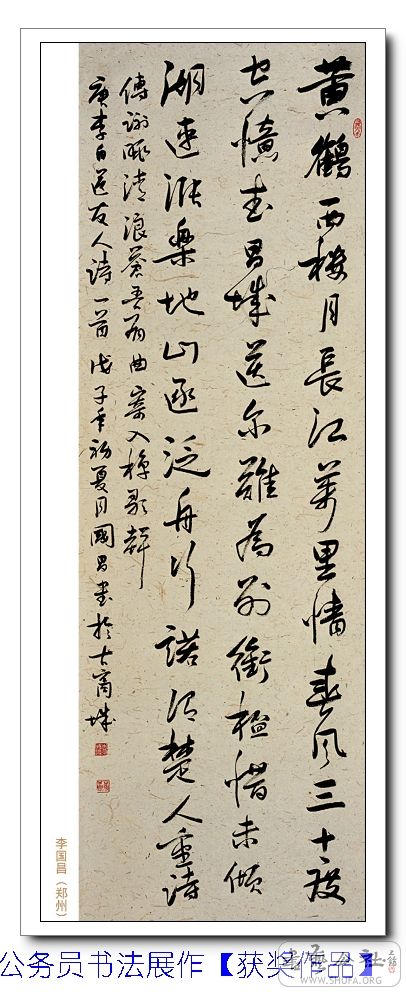 黄鶴西樓月長江萬里情春风三十度
空憶武昌城送尔難為别銜杯惜未傾
湖連張樂地山逐泛舟行諾谓楚人重詩
傳謝朓清浪蒼吾有曲寄入棹歌聲
唐李白送友人詩一首戊子年初夏月國昌書於古商城
李国昌（郑州）
公务员书法展作【获奖作品】
书法公社
WWW.SHUFA.ORG